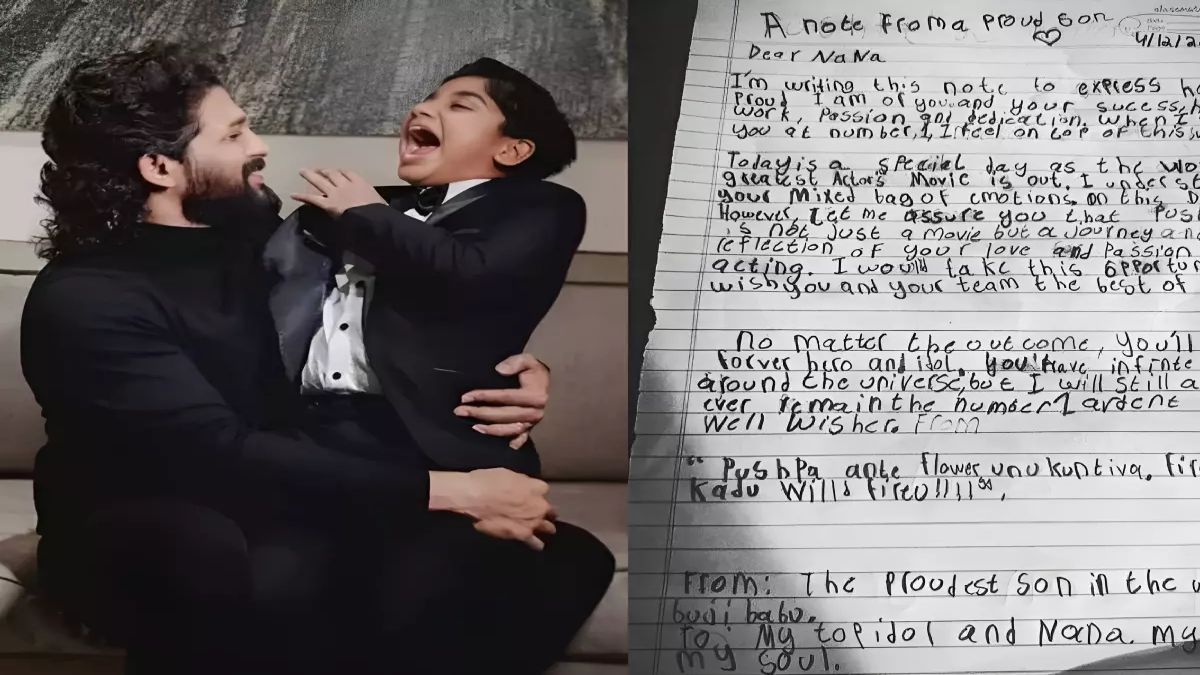 A note from a proud son
4/12/2
Dear NaNa
I'm writing this note to express ho
Proud I am of you and your sucess,
work, Passion and dedication. when I
you at number 1, I feel on top of this
Today is a special day as the wo
greatest Actor's Movie is out. I underst
your Mixed bag of emotions on this D
However, Let me assure you that Pus
is not just a movie but a Journey an
reflection of your love and Passion
acting. I would take this opportun
wish you and your team the best of
No matter the outcome, you'll
forver hero and idol. you have infinte
around the universe, but I will still a
ever remain the number 1 ardent
Well Wisher. From
"Pushpa ante flower unukuntiva, fir
Kadu Willd fireu!!!!!".
From: The Proudest son in the w
buji babu.
To: My top idol and NaNa. my
my soul.